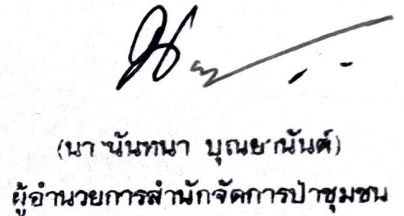 (นา นันทนา บุณยานันต์)
ผู้อำนวยการสำนักจัดการป่าชุมชน